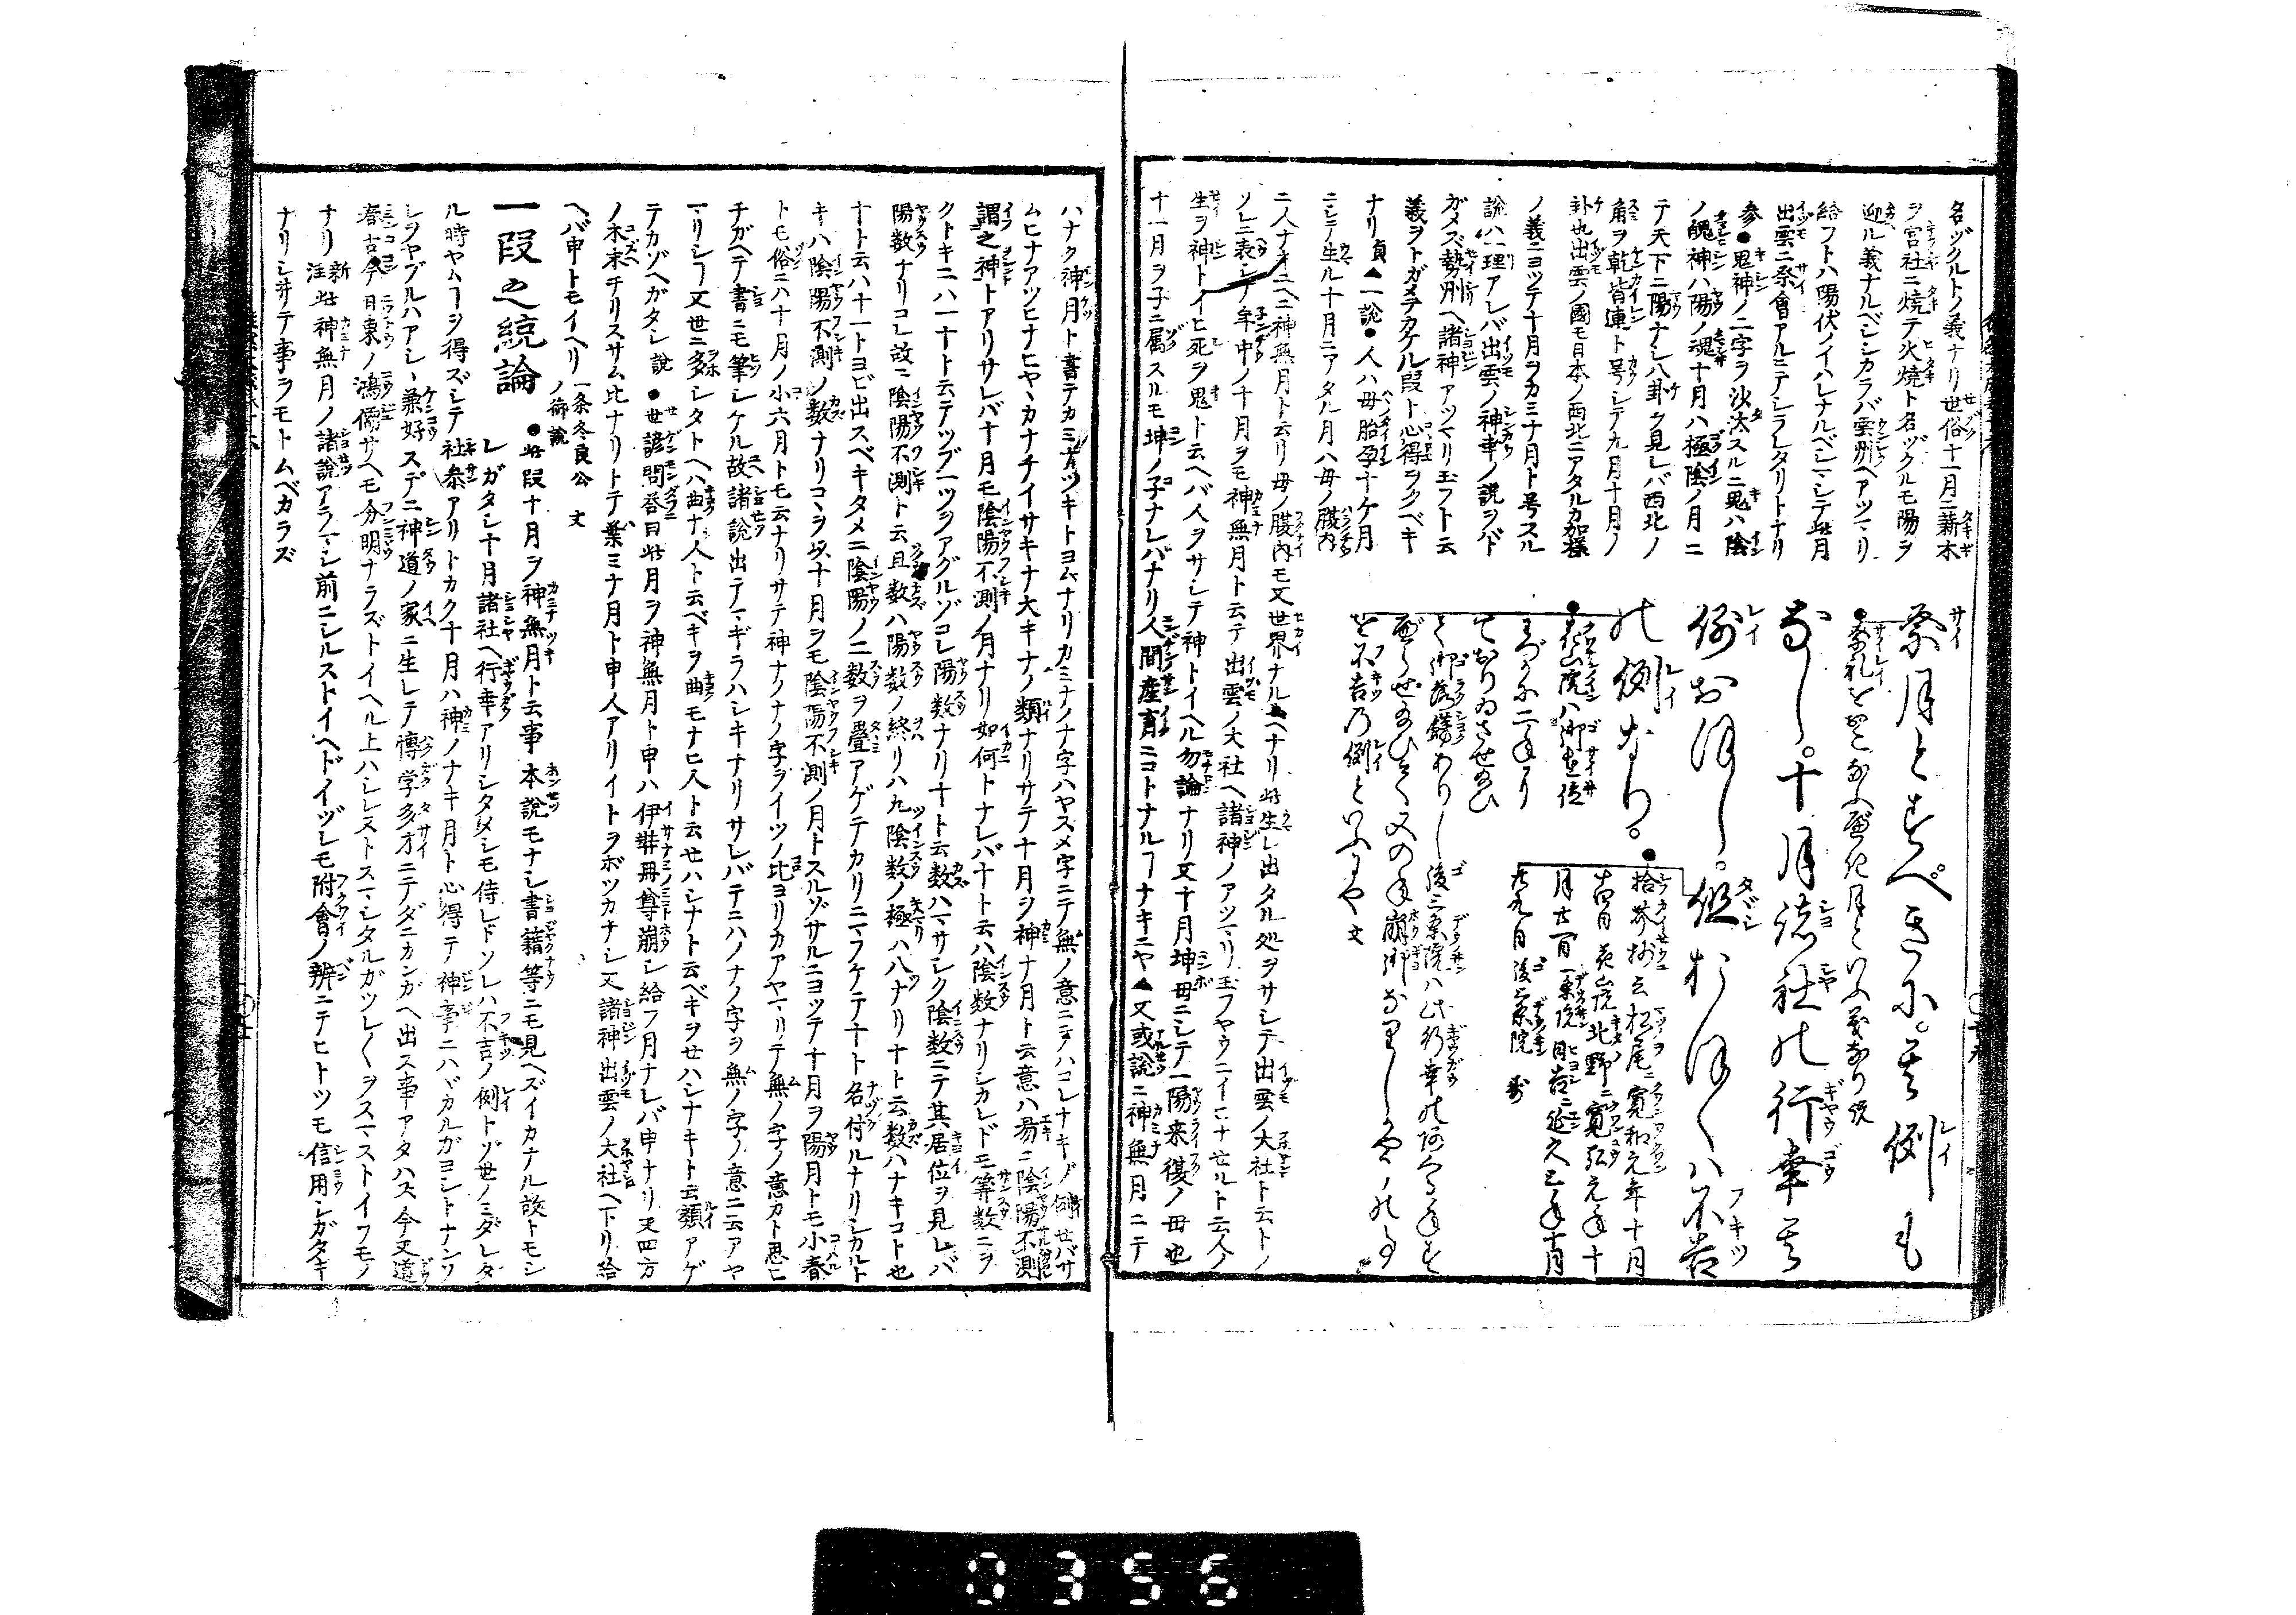 名ヅクルトノ義ナリ世俗十一月ニ薪木
ヲ宮社ニ焼テ火焼ト名ヅクルモ陽ヲ
迎ル義ナルベシシカラバ雲州ヘアツマリ
給フトハ陽伏ノイハレナルベシマシテ此月
出雲ニ祭會アルニテシラレタリトナリ
参●鬼神ノ二字ヲ沙汰スルニ鬼ハ陰
ノ醜神ハ陽ノ魂十月ハ極陰ノ月ニ
テ天下ニ陽ナシ八卦ヲ見レバ西北ノ
角ヲ乾皆連ト号シテ九月十月ノ
卦也出雲ノ國モ日本ノ西北ニアタルカ如様
ノ義ニヨツテ十月ヲカミナ月ト号スル
説ハ一理アレバ出雲ノ神幸ノ説ヲバト
ガメズ勢州ヘ諸神アツマリ玉フト云
義ヲトガメテカケル段ト心得ヲクベキ
ナリ貞▲一説●人ハ母胎孕十ケ月
ニシテ生ル十月ニアタル月ハ母ノ腹内
祭月とすべきに。其例も
●祭礼をおこなふべき月といふ義なり説
なし。十月諸社の行幸其
例おほし。但おほくハ不吉
の例なり。
●拾芥抄云松尾ニ寛和元年十月
十四日花山院北野ニ寛弘元年十
月廿一日一条院日吉ニ延久三年十月
廿九日後三条院
●花山院ハ御在位
わづかに二年より
ておりゐさせ給ひ
て御落飾ありし後三条院ハ此行幸の
を不吉乃例といふにや文
二人ナキユヘニ神無月ト云リ母ノ腹内モ又世界ナルユヘナリ此生レ出タル処ヲサシテ出雲ノ大社ト云トノ
ソレニ表シテ年中ノ十月ヲモ神無月ト云テ出雲ノ大社ヘ諸神ノアツマリ玉フヤウニイヒナセルト云々
生ヲ神トイヒ死ヲ鬼ト云ヘバ人ヲサシテ神トイヘル勿論ナリ又十月坤母ニシテ一陽来復ノ母也
十一月ヲ子ニ属スルモ坤ノ子ナレバナリ人間産育ニコトナルコナキニヤ▲又或説ニ神無月ニテ
ハナク神月ト書テカミナツキトヨムナリカミナノナ字ハヤスメ字ニテ無ノ意ニテハコレナキゾ例セバサ
ムヒナアツヒナヒヤヽカナチイサキナ大キナノ類ナリサテ十月ヲ神ナ月ト云意ハ易ニ陰陽不測
謂之神トアリサレバ十月モ陰陽不測ノ月ナリ如何トナレバ十ト云ハ陰数ナリシカレドモ筭数ニヲ
クトキニハ一十ト云テツブ一ツヲアグルゾコレ陽数ナリ十ト云数ハマサシク陰数ニテ其居位ヲ見レバ
陽数ナリコレ故ニ陰陽不測ト云且数ハ陽数ノ終リハ九陰数ノ極ハ八ナリ十ト云数ハナキコト也
十ト云ハ十一トヨビ出スベキタメニ陰陽ノ二数ヲ畳アゲテカリニマフケテ十ト名付ルナリシカルト
キハ陰陽不測ノ数ナリコヽヲ以十月ヲモ陰陽不測ノ月トスルゾサルニヨツテ十月ヲ陽月トモ小春
トモ俗ニハ十月ノ小六月トモ云ナリサテ神ナノナノ字ヲイツノ比ヨリカアヤマリテ無ノ字ノ意カト思ヒ
チガヘテ書ニモ筆シケル故諸説出テマギラハシキナリサレバテニハノナノ字ヲ無ノ字ノ意ニ云アヤ
マリシコ又世ニ多シタトヘハ曲ナ人ト云ベキヲ曲モナヒ人ト云セハシナト云ベキヲセハシナキト云類アゲ
テカゾヘガタシ説●世諺問荅曰此月ヲ神無月ト申ハ伊弉冊尊崩シ給フ月ナレバ申ナリ又四方
ノ木末チリスサム比ナリトテ葉ミナ月ト申人アリイトヲボツカナシ又諸神出雲ノ大社ヘ下リ給
ヘバ申トモイヘリ一条冬良公ノ御説文
一段之統論●此段十月ヲ神無月ト云事本説モナシ書籍等ニモ見ヘズイカナル故トモシ
レガタシ十月諸社ヘ行幸アリシタメシモ侍レドソレハ不吉ノ例トゾ世ノミダレタ
ル時ヤムコヲ得ズシテ社参アリトカク十月ハ神ノナキ月ト心得テ神事ニハヾカルガヨシトナンソ
レヲヤブルハアシヽ兼好スデニ神道ノ家ニ生レテ博学多才ニテダニカンガヘ出ス事アタハズ今又道
春吉今日東ノ鴻儒サヘモ分明ナラズトイヘル上ハシレストスマシタルガツレ〳〵ヲスマストイフモノ
ナリ新注此神無月ノ諸説アラマシ前ニシルストイヘドイヅレモ附會ノ辨ニテヒトツモ信用シガタキ
ナリシヰテ事ヲモトムベカラズ
0356